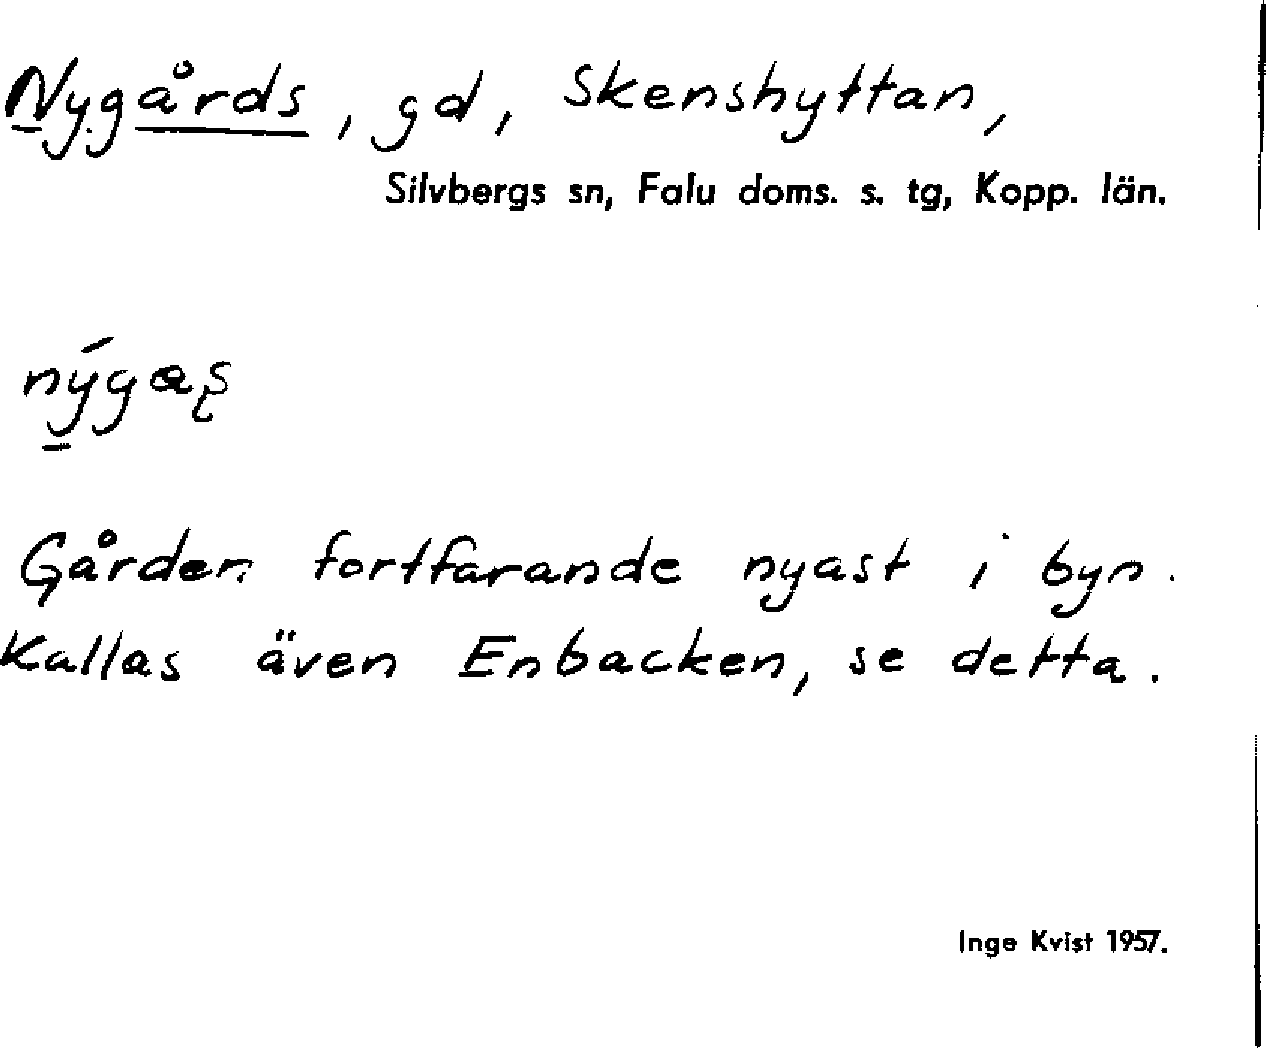 Nygårds, gd, Skenshyttan,
Silvbergs sn, Falu doms. s. tg, Kopp. län.
Gården fortfarande nyast i byn.
Kallas även Enbacken, se detta.
Inge Kvist 1957.